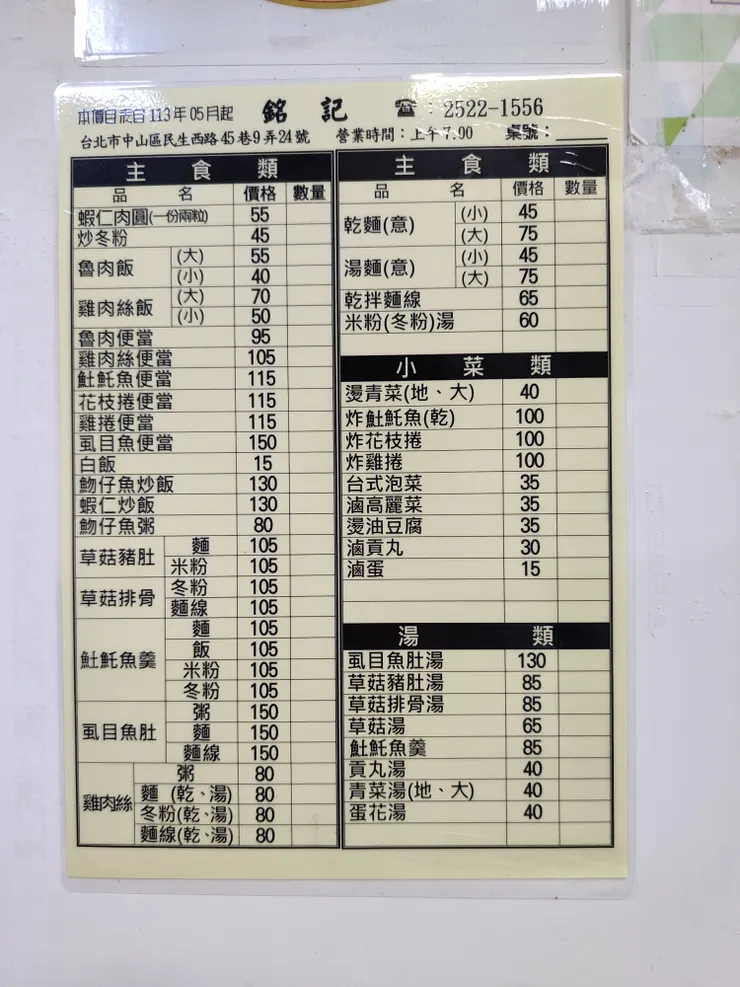 本價目表自113年05月起 銘記 ☎:2522-1556
台北市中山區民生西路45巷9弄24號 營業時間:上午7:00 桌號:____
主食類
品名 價格 數量
蝦仁肉圓(一份兩粒) 55
炒冬粉 45
魯肉飯 (大) 55
(小) 40
雞肉絲飯 (大) 70
(小) 50
魯肉便當 95
雞肉絲便當 105
魠魠魚便當 115
花枝捲便當 115
雞捲便當 115
虱目魚便當 150
白飯 15
魩仔魚炒飯 130
蝦仁炒飯 130
魩仔魚粥 80
草菇豬肚 麵 105
米粉 105
草菇排骨 冬粉 105
麵線 105
𩵚魠魚羹 麵 105
飯 105
米粉 105
冬粉 105
虱目魚肚 粥 150
麵 150
麵線 150
雞肉絲 粥 80
麵(乾、湯) 80
冬粉(乾、湯) 80
麵線(乾、湯) 80
主食類
品名 價格 數量
乾麵(意) (小) 45
(大) 75
湯麵(意) (小) 45
(大) 75
乾拌麵線 65
米粉(冬粉)湯 60
小菜類
燙青菜(地、大) 40
炸𩵚魠魚(乾) 100
炸花枝捲 100
炸雞捲 100
台式泡菜 35
滷高麗菜 35
燙油豆腐 35
滷貢丸 30
滷蛋 15
湯類
虱目魚肚湯 130
草菇豬肚湯 85
草菇排骨湯 85
草菇湯 65
𩵚魠魚羹 85
貢丸湯 40
青菜湯(地、大) 40
蛋花湯 40